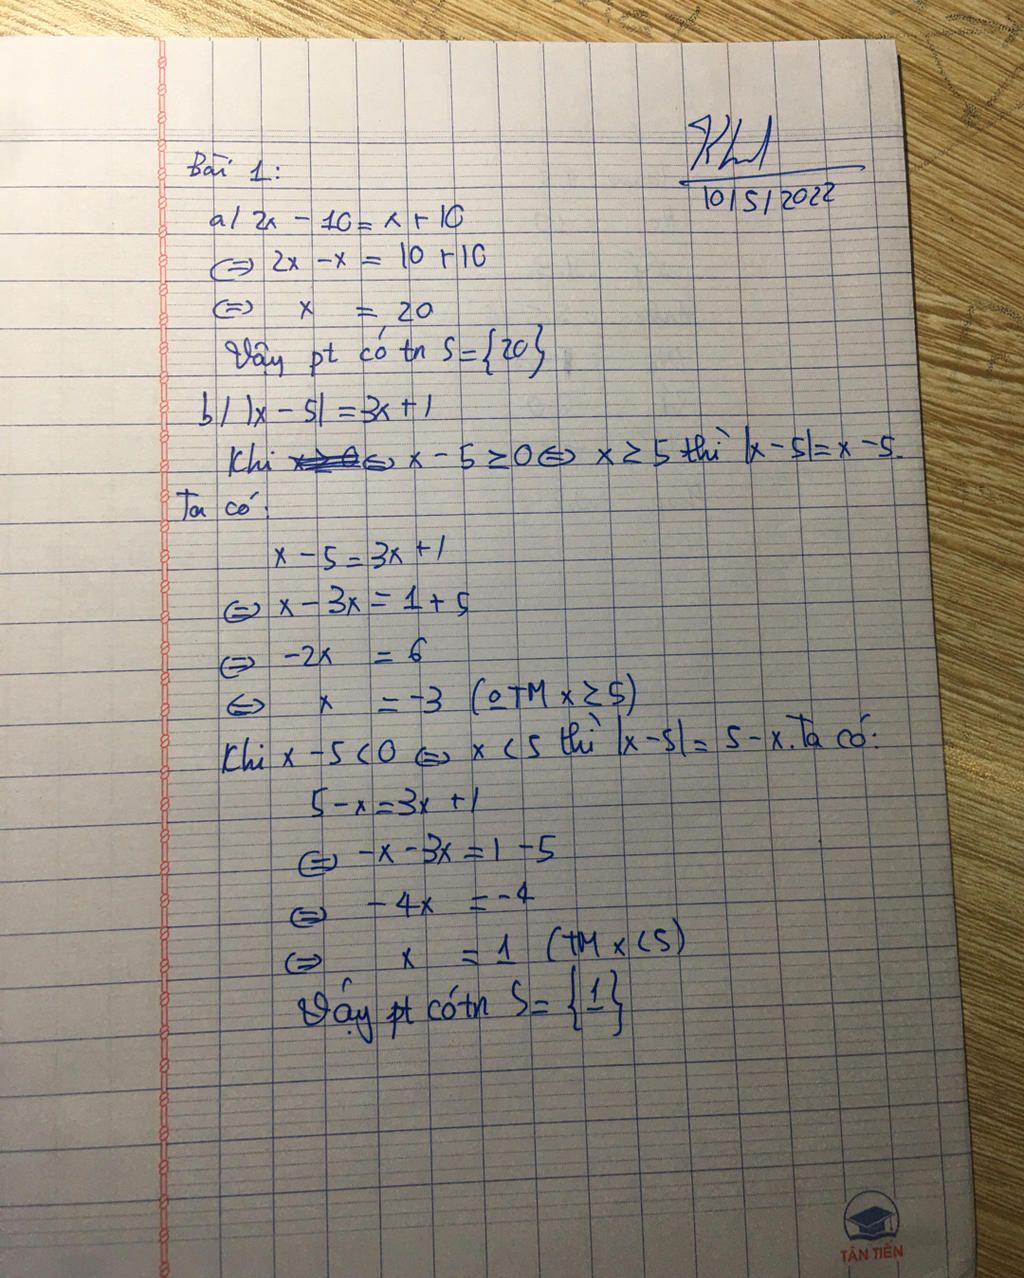 10/5/2022
Bài 1:
a/ 2x - 10 = x + 10
⇔ 2x - x = 10 + 10
⇔ x = 20
Vậy pt có tn S = {20}
b/ |x - 5| = 3x + 1
Khi ⇔ x - 5 ≥ 0 ⇔ x ≥ 5 thì |x - 5| = x - 5.
Ta có:
x - 5 = 3x + 1
⇔ x - 3x = 1 + 5
⇔ -2x = 6
⇔ x = -3 (0TM x ≥ 5)
Khi x - 5 < 0 ⇔ x < 5 thì |x - 5| = 5 - x. Ta có:
5 - x = 3x + 1
⇔ -x - 3x = 1 - 5
⇔ -4x = -4
⇔ x = 1 (TM x < 5)
Vậy pt có tn S = {1}
TÂN TIẾN